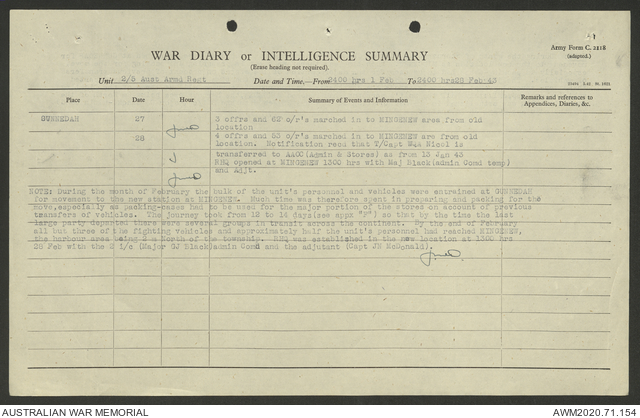 Army Form C. 2118
(adapted.)
WAR DIARY or INTELLIGENCE SUMMARY
(Erase heading not required).
Unit 2/5 Aust Armd Regt Date and Time.—From 2400 hrs 1 Feb To 2400 hrs 28 Feb 43
Place Date Hour Summary of Events and Information Remarks and references to Appendices, Diaries, &c.
GUNNEDAH 27 3 offrs and 62 o/r's marched in to MINGENEW area from old
location
28 4 offrs and 53 o/r's marched in to MINGENEW are from old
location. Notification recd that T/Capt Nicol is
transferred to AAOC (Admin & Stores) as from 13 Jan 43
RHQ opened at MINGENEW 1300 hrs with Maj Black(admin Comd temp)
and Adjt.
NOTE: During the month of February the bulk of the unit's personnel and vehicles were entrained at GUNNEDAH
for movement to the new station at MINGENEW. Much time was therefore spent in preparing and packing for the
move,especially as packing-cases had to be used for the major portion of the stores on account of previous
transfers of vehicles. The journey took from 12 to 14 days(see appx "F") so that by the time the last
large party departed there were several groups in transit across the continent. By the end of February
all but three of the fighting vehicles and approximately half the unit's personnel had reached MINGENEW,
the harbour area being 7 m North of the township. RHQ was established in the new location at 1300 hrs
28 Feb with the 2 i/c (Major GJ Black)admin Comd and the adjutant (Capt JN McDonald).
AUSTRALIAN WAR MEMORIAL AWM2020.71.154